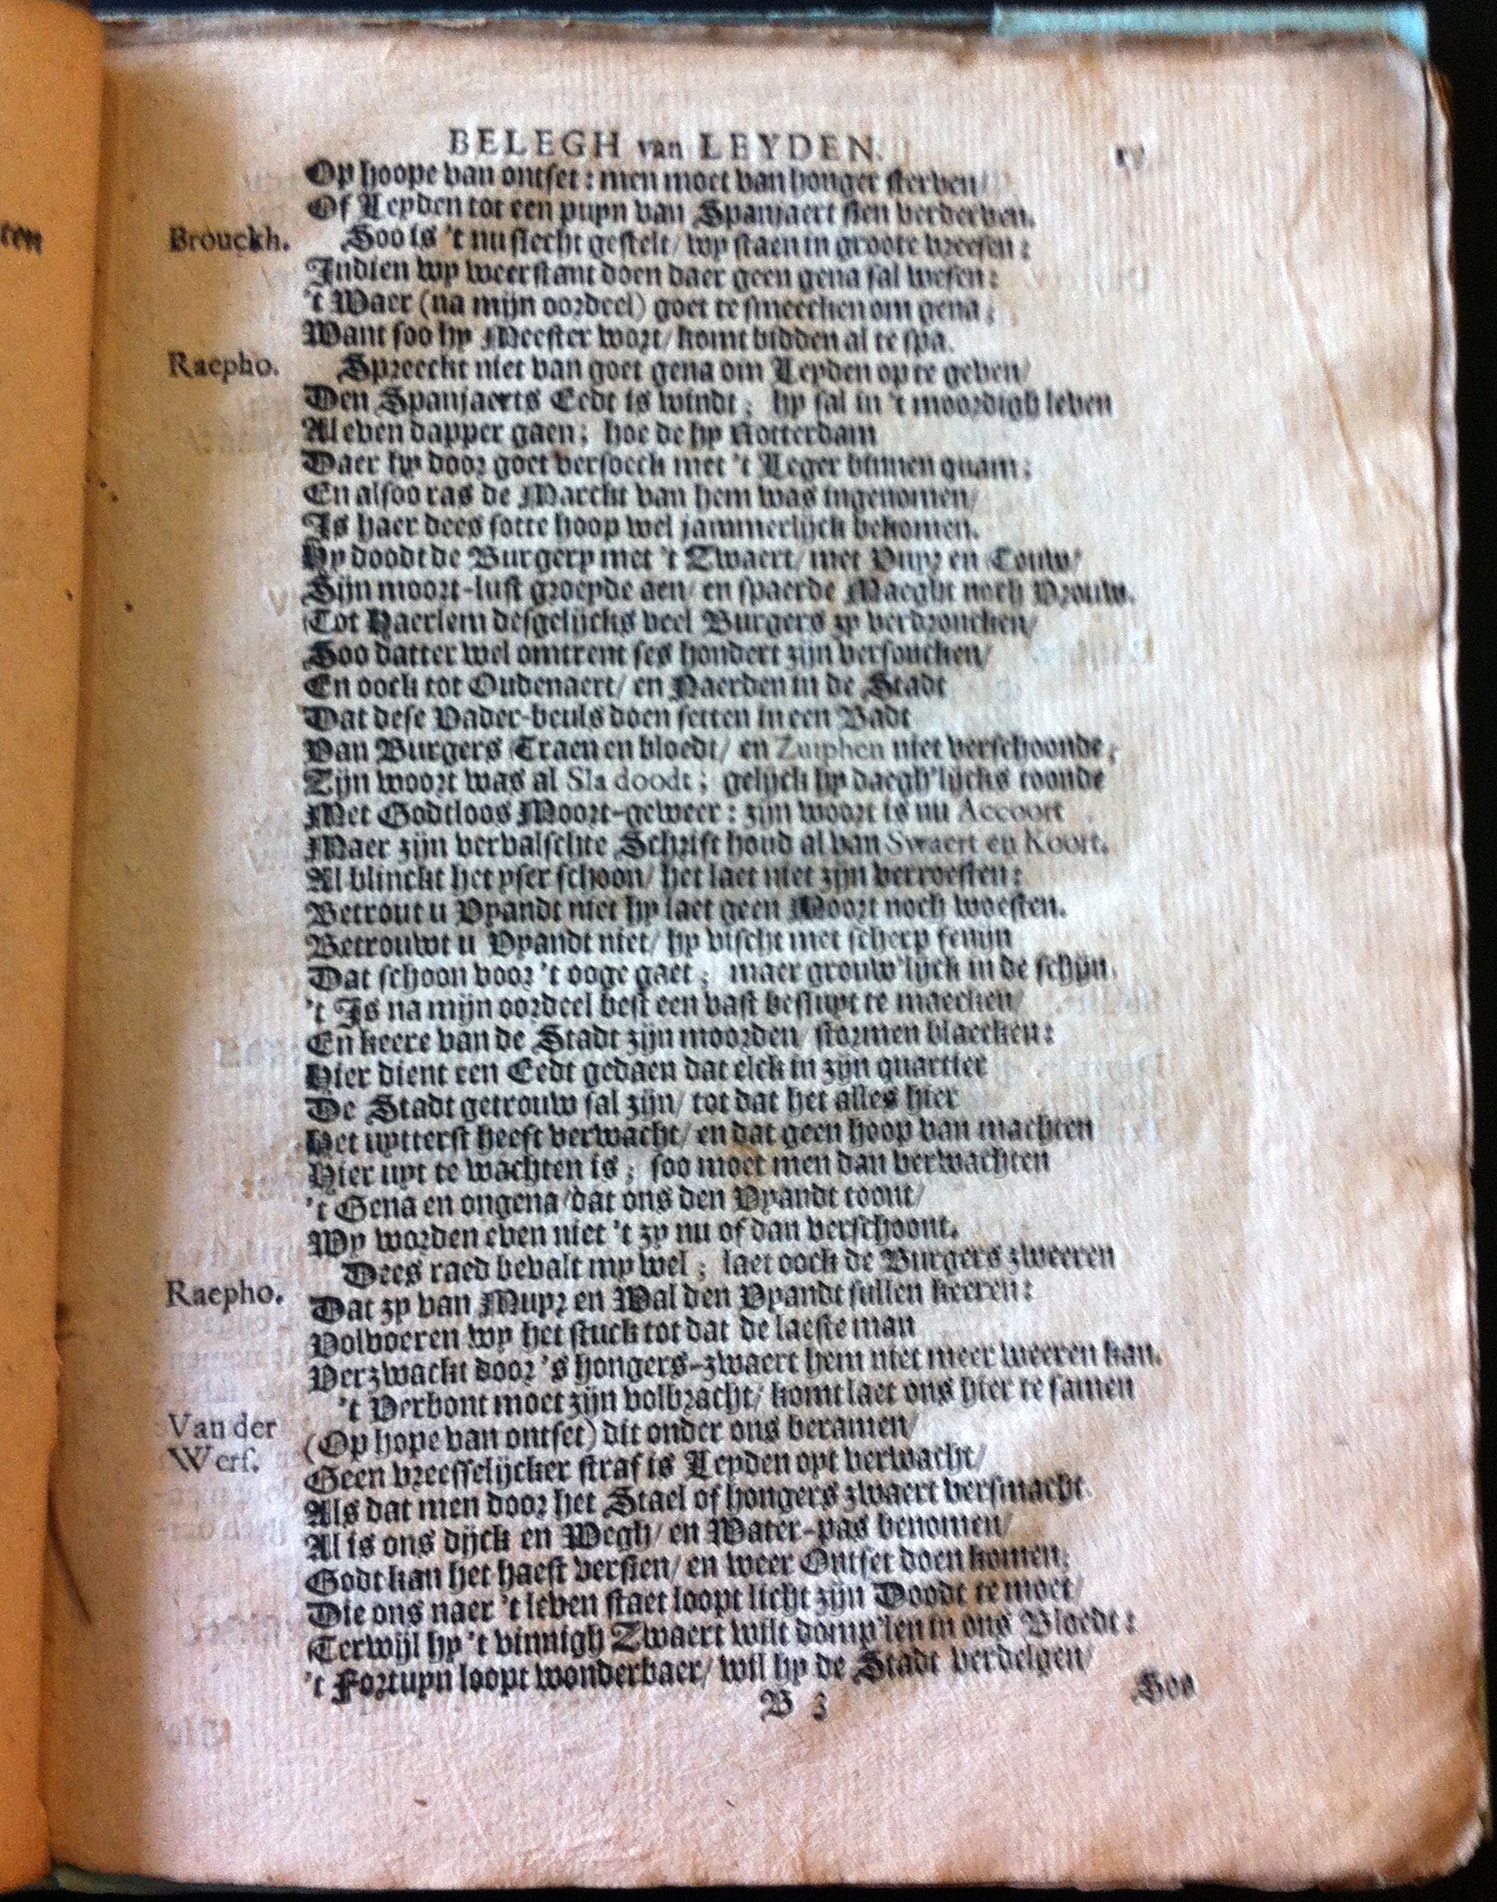 BELEGH van LEYDEN.
Op hoope van ontset: men moet van honger sterven/
Of Leyden tot een puyn van Spanjaert sien verderven.
Brouckh. Soo is 't nu slecht gestelt/ wy staen in groote vreesen:
Indien wy weerstant doen daer geen gena sal wesen:
't Waer (na mijn oordeel) goet te smeecken om gena;
Want soo hy Meester wort/ komt bidden al te spa.
Raepho. Spreeckt niet van goet gena om Leyden op te geven/
Den Spanjaerts Eedt is windt; hy sal in 't moordigh leven
Al even dapper gaen; hoe de hy Rotterdam
Daer hy door goet versoeck met 't Leger binnen quam;
En alsoo ras de Marckt van hem was ingenomen/
Is haer dees sotte hoop wel jammerlijck bekomen.
Hy doodt de Burgery met 't Zwaert/ met Vuyr en Touw/
Sijn moort-lust groeyde aen/ en spaerde Maeght noch Vrouw.
Tot Haerlem desgelijcks veel Burgers zy verdroncken/
Soo datter wel omtrent ses hondert zijn versoncken/
En oock tot Oudenaert/ en Naerden in de Stadt
Dat dese Vader-beuls doen setten in een Badt
Van Burgers Traen en bloedt/ en Zutphen niet verschoonde;
Zijn woort was al Sla doodt; gelijck hy daegh'lijcks toonde
Met Godtloos Moort-geweer: zijn woort is nu Accoort
Maer zijn vervalschte Schrift houd al van Swaert en Koort.
Al blinckt het yser schoon/ het laet niet zijn verroesten:
Betrout u Vyandt niet hy laet geen Moort noch woesten.
Betrouwt u Vyandt niet/ hy vischt met scherp fenijn
Dat schoon voor 't ooge gaet; maer grouw'lijck in de schijn.
't Is na mijn oordeel best een vast besluyt te maecken/
En keere van de Stadt zijn moorden/ stormen blaecken:
Hier dient een Eedt gedaen dat elck in zijn quartier
De Stadt getrouw sal zijn/ tot dat het alles hier
Het uytterst heeft verwacht/ en dat geen hoop van machten
Hier uyt te wachten is; soo moet men dan verwachten
't Gena en ongena/ dat ons den Vyandt toont/
Wy worden even niet 't zy nu of dan verschoont.
Dees raed bevalt my wel; laet oock de Burgers zweeren
Raepho. Dat zy van Muyr en Wal den Vyandt sullen keeren:
Volvoeren wy het stuck tot dat de laeste man
Verzwackt door 's hongers-zwaert hem niet meer weeren kan.
't Verbont moet zijn volbracht/ komt laet ons hier te samen
Van der (Op hope van ontset) dit onder ons beramen/
Werf. Geen vreesselijcker straf is Leyden opt verwacht/
Als dat men door het Stael of hongers zwaert versmacht.
Al is ons dijck en Wegh/ en Water-pas benomen/
Godt kan het haest versien/ en weer Ontset doen komen;
Die ons naer 't leven staet loopt licht zijn Doodt te moet/
Terwijl hy 't vinnigh Zwaert wilt domp'len in ons Bloedt:
't Fortuyn loopt wonderbaer/ wil hy de Stadt verdelgen/
B 3 Soo